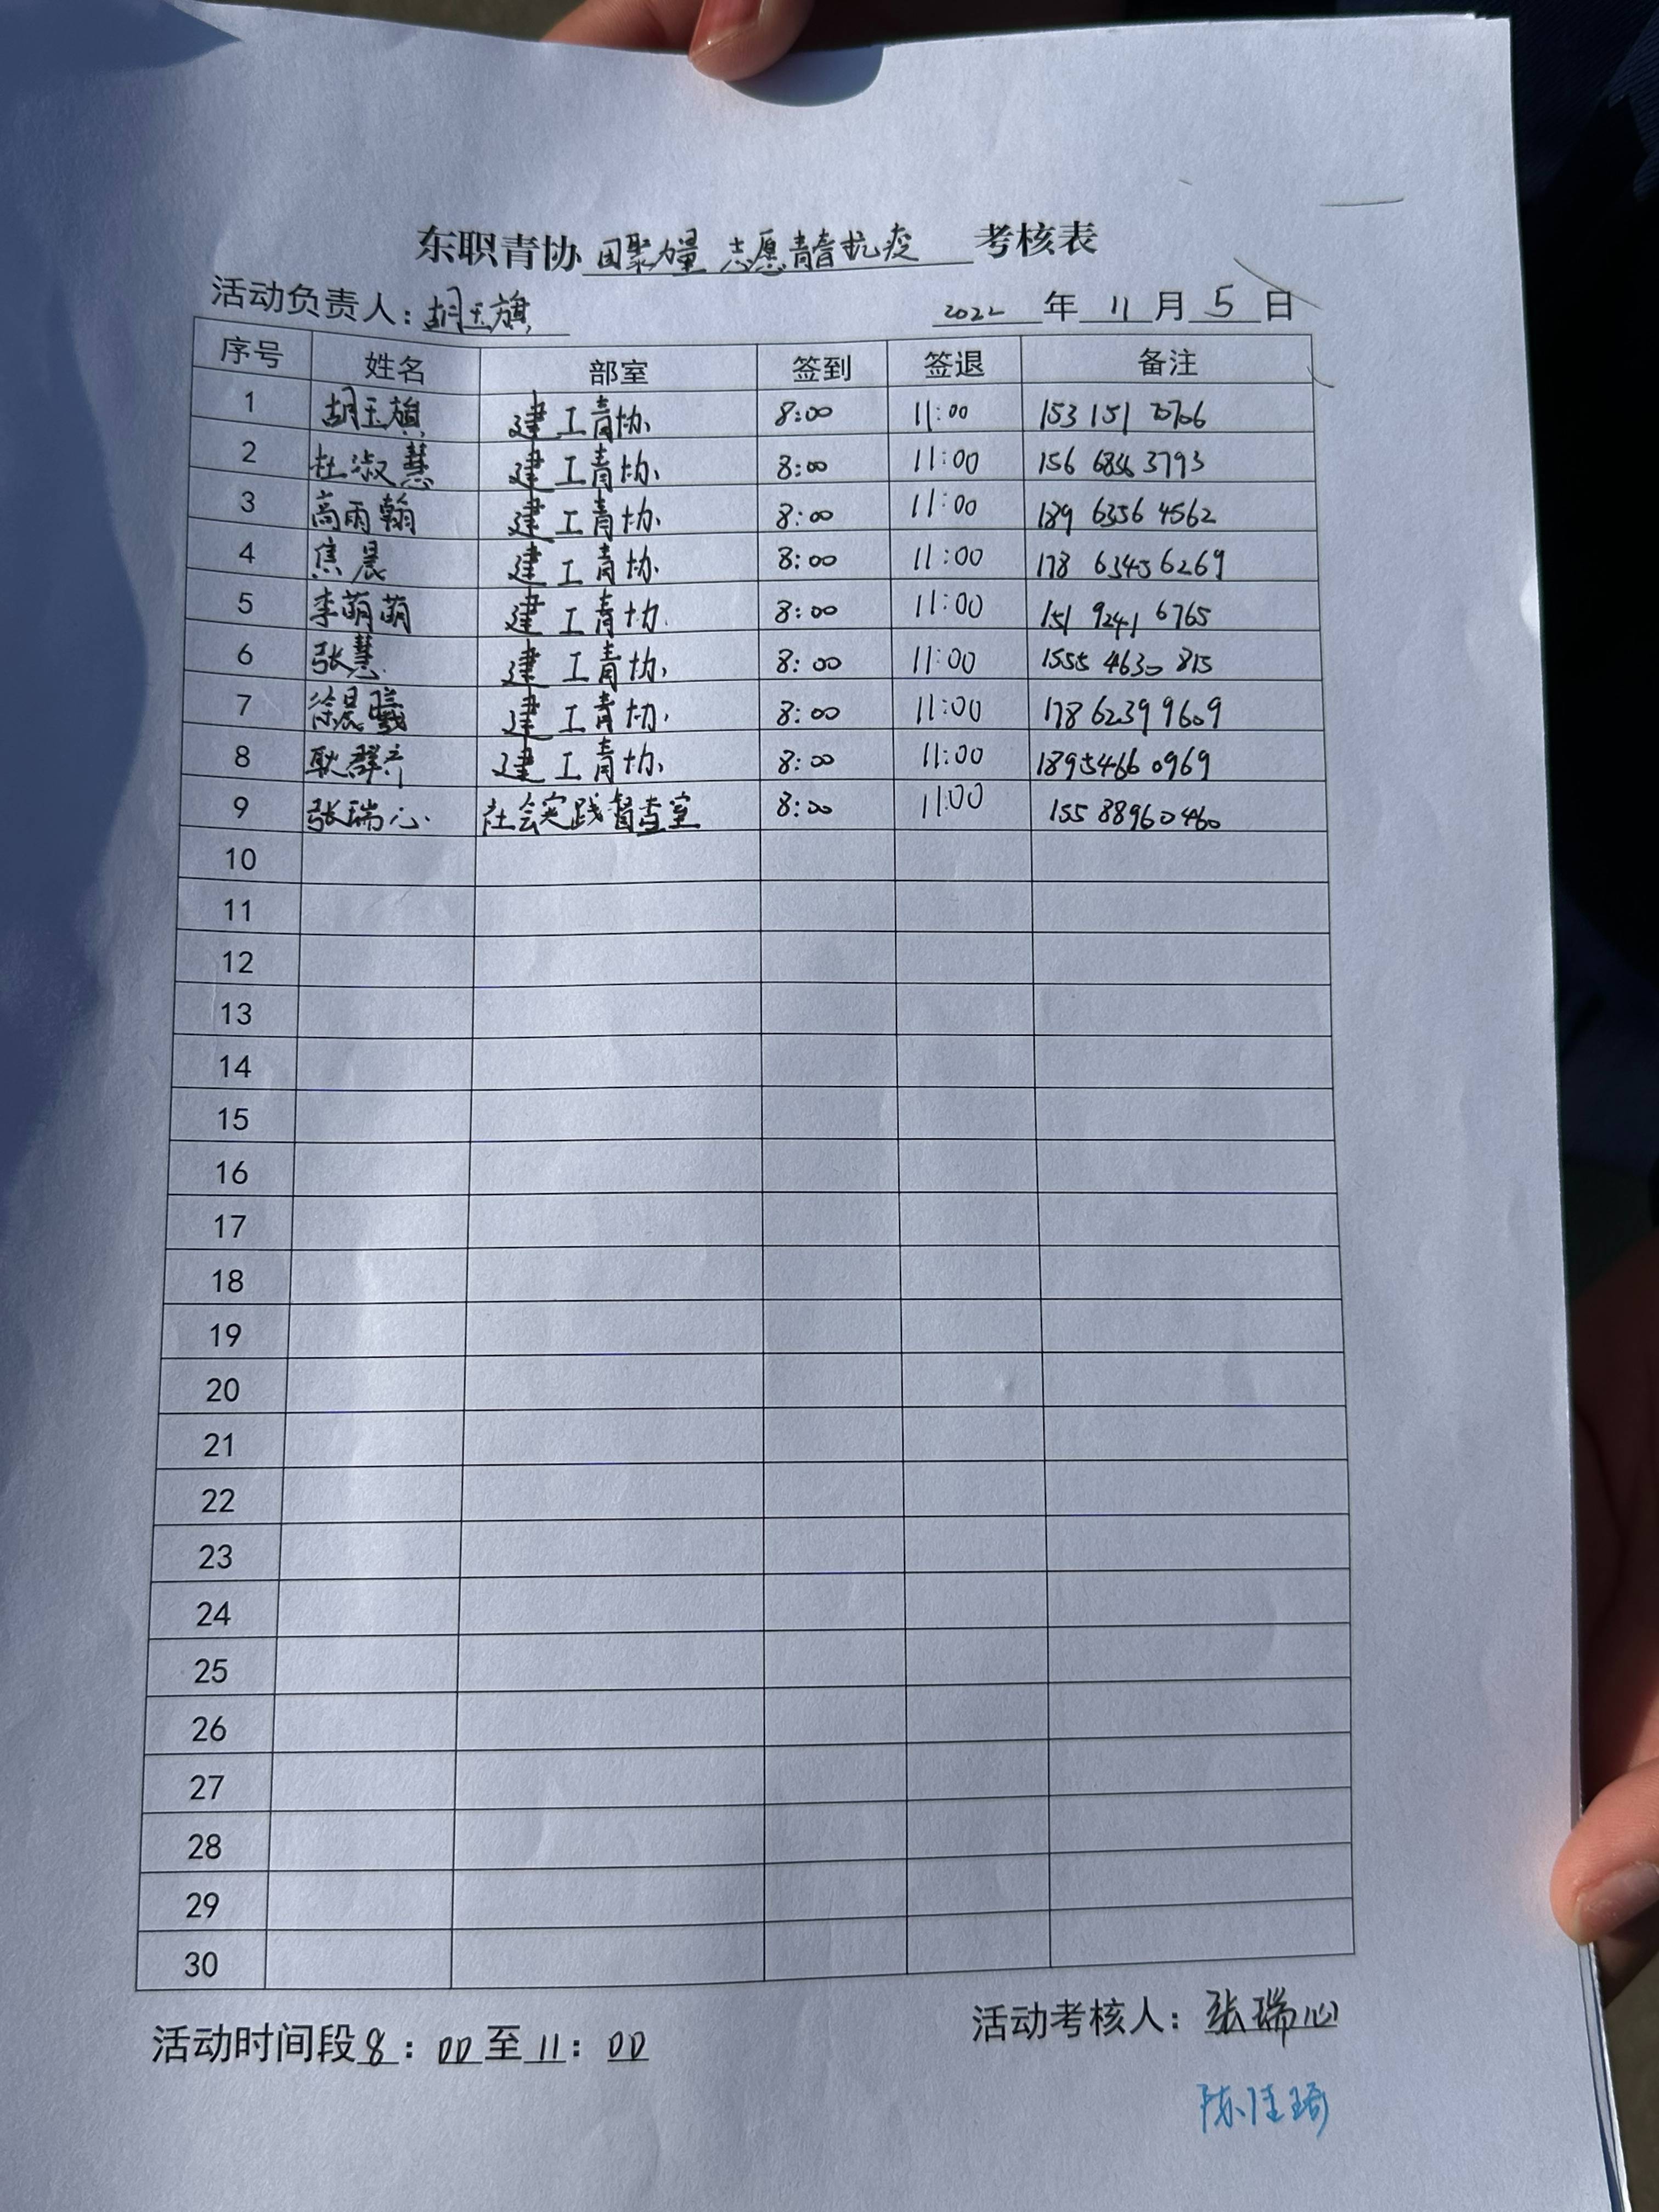 东职青协 团聚力量 志愿青春抗疫 考核表
活动负责人：胡玉旗 2022 年 11 月 5 日
序号 姓名 部室 签到 签退 备注
1 胡玉旗 建工青协 8:00 11:00 153 151
2 杜淑慧 建工青协 8:00 11:00 156 3793
3 高雨翰 建工青协 8:00 11:00 189 6356 4562
4 焦晨 建工青协 8:00 11:00 178 63456269
5 李萌萌 建工青协 8:00 11:00 151 9241 6765
6 张慧 建工青协 8:00 11:00 1555 4630 815
7 徐晨曦 建工青协 8:00 11:00 178 6239 9609
8 耿群齐 建工青协 8:00 11:00 1895466 0969
9 张瑞心 社会实践督查室 8:00 11:00 155 88960460
10
11
12
13
14
15
16
17
18
19
20
21
22
23
24
25
26
27
28
29
30
活动时间段 8：00 至 11：00 活动考核人：张瑞心
陈佳琦